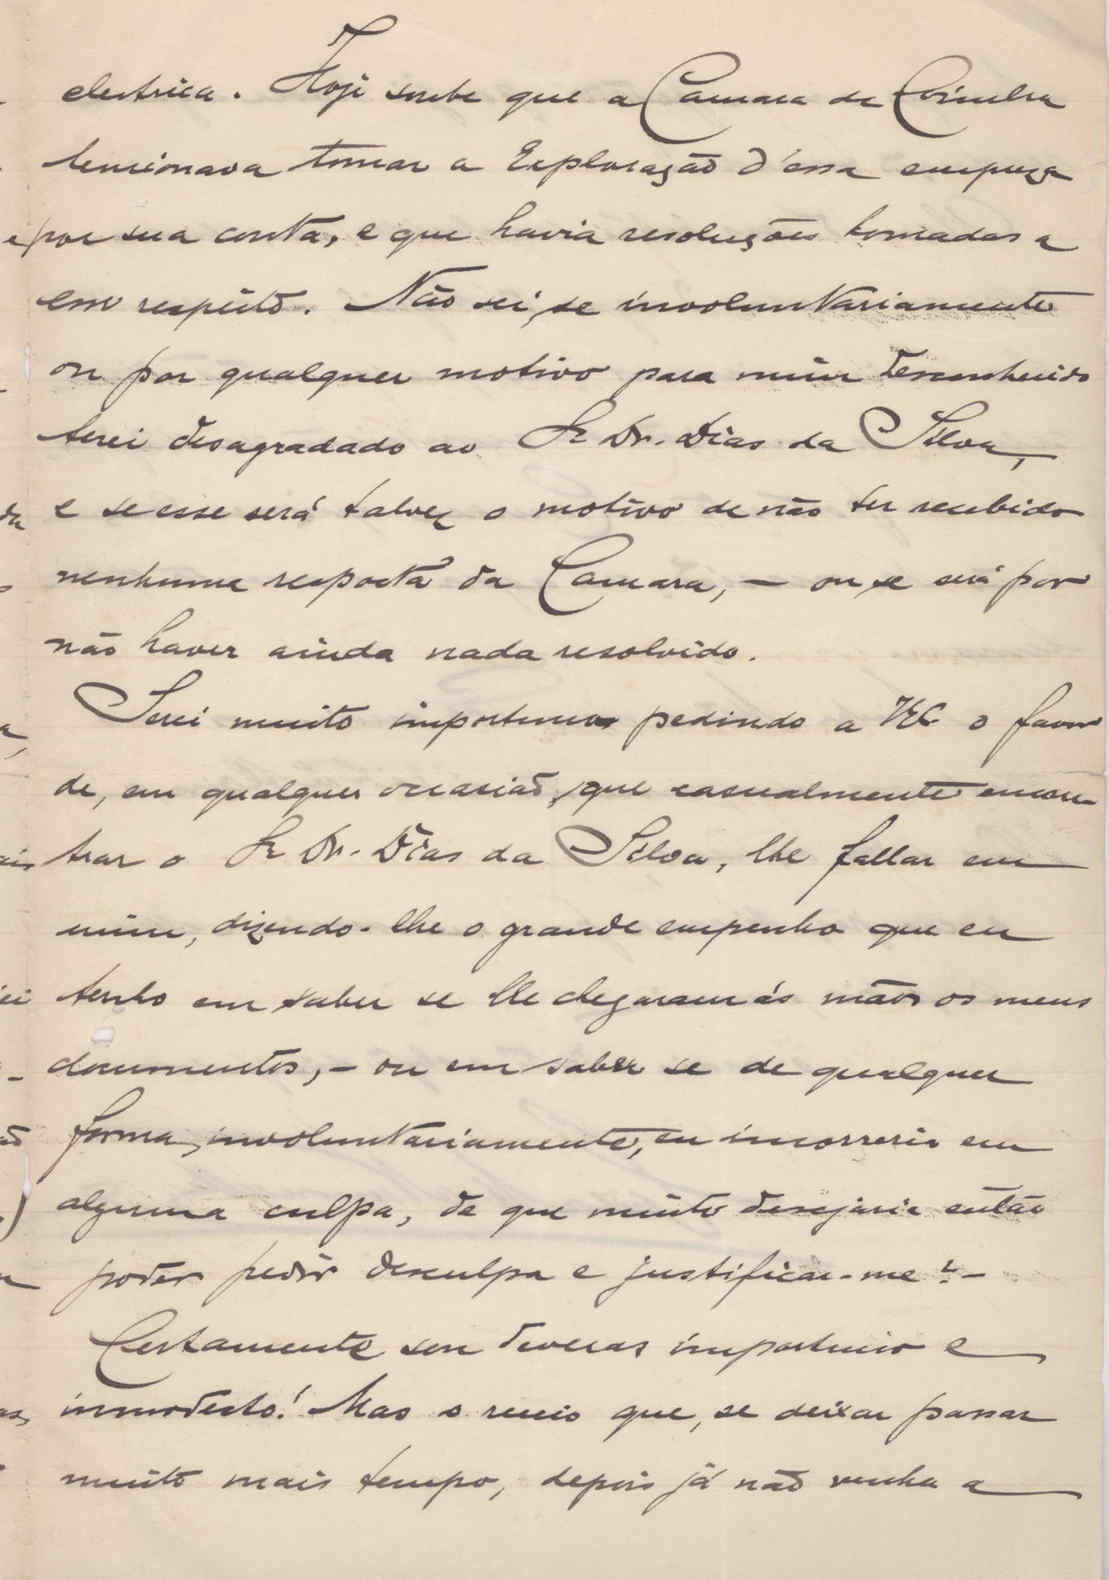 electrica. Hoje soube que a Camara de Coimbra
tencionava tomar a Exploração d'essa empreza
por sua conta, e que havia resoluções tomadas a
esse respeito. Não sei, se involuntariamente
ou por qualquer motivo para mim desconhecido
terei desagradado ao Sr Dr. Dias da Silva,
e se esse será talvez o motivo de não ter recebido
nenhuma resposta da Camara, – ou se será por
não haver ainda nada resolvido.
Serei muito importuno pedindo a VEª o favor
de, em qualquer occasião, que casualmente encon-
trar o Sr Dr. Dias da Silva, lhe fallar em
mim, dizendo-lhe o grande empenho que eu
tenho em saber se lhe chegaram ás mãos os meus
documentos, – ou em saber se de qualquer
forma, involuntariamente, eu incorreria em
alguma culpa, de que muito desejaria então
poder pedir desculpa e justificar-me? –
Certamente sou deveras importuno e
immodesto! Mas o receio que, se deixar passar
muito mais tempo, depois já não venha a